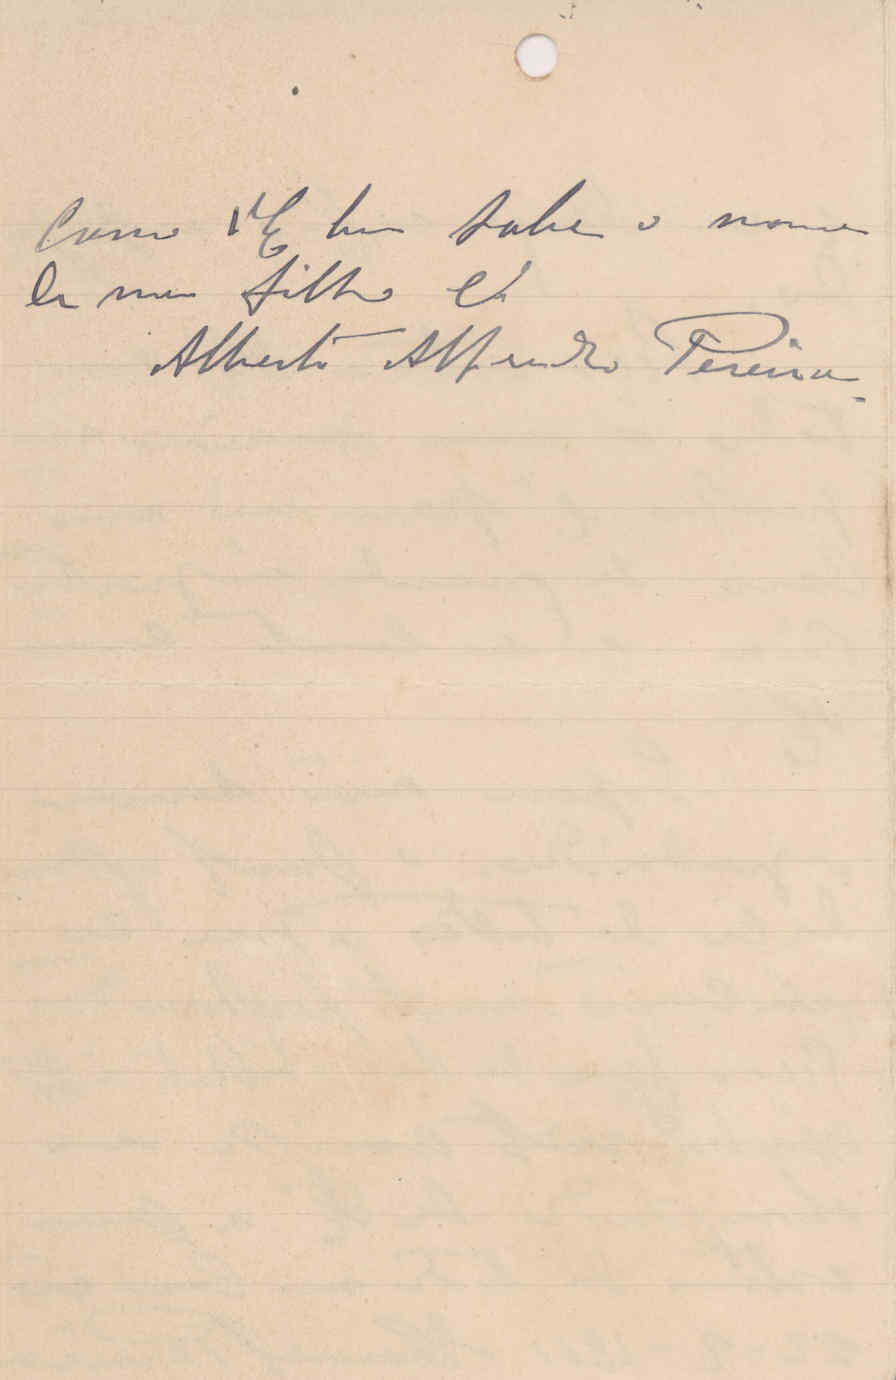 Como VE bem sabe o nome
de meu filho é
Alberto Alfredo Pereira